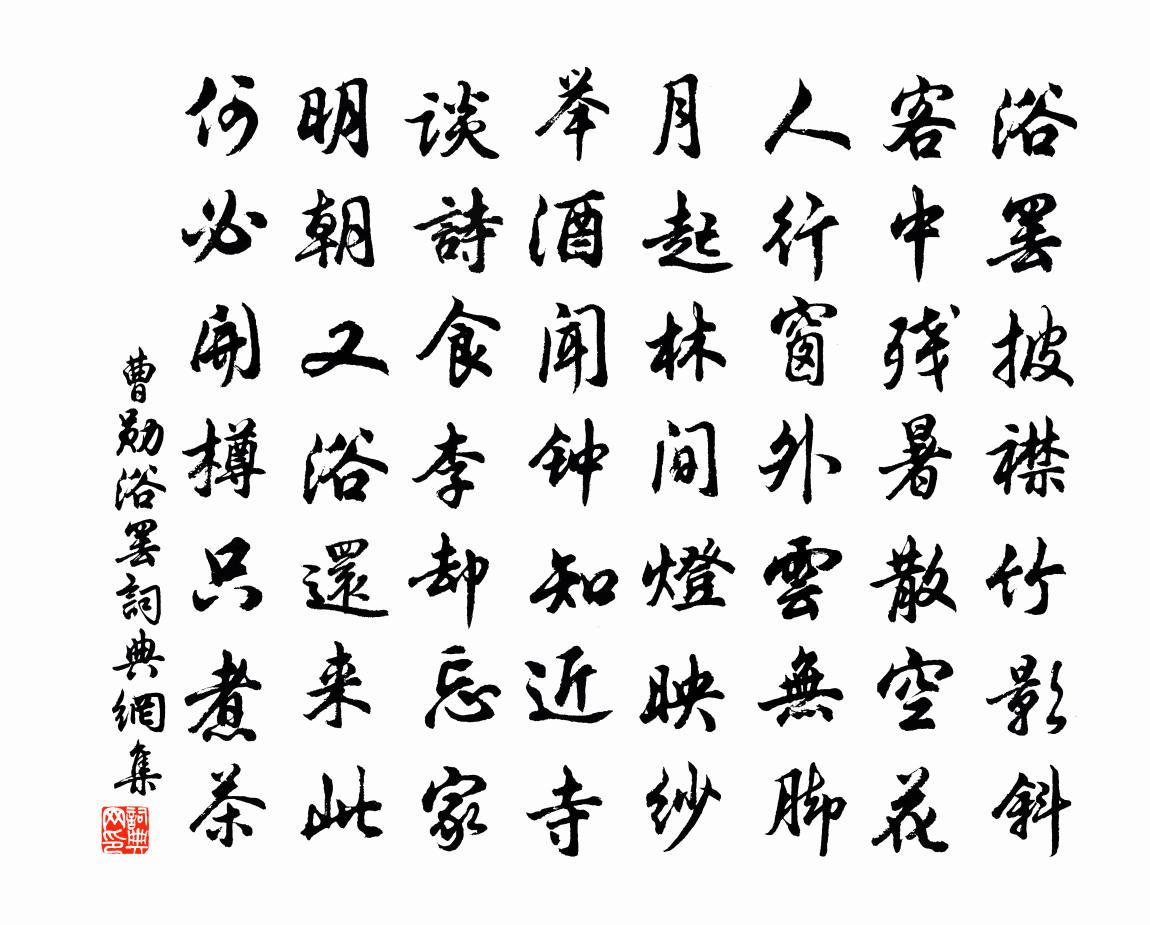 浴罢披襟竹影斜
客中残暑散空花
人行窗外雲無脚
月起林间燈映纱
举酒闻钟知近寺
谈詩食李却忘家
明朝又浴還来此
何必開樽只煮茶
曹勋浴罢詞典網集
詞典网印